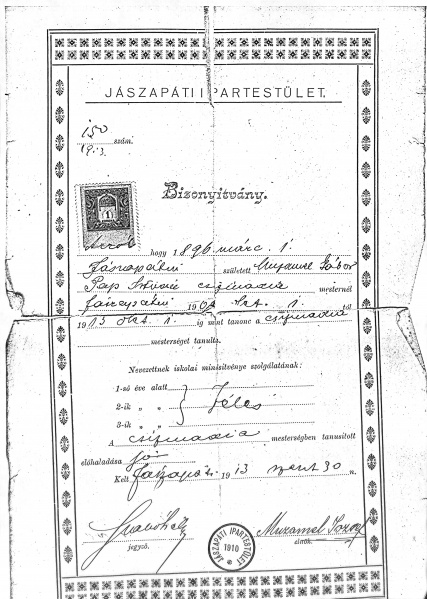 JÁSZAPÁTI IPARTESTÜLET.
150
1913 szám.
Bizonyitvány.
1
hogy 1896 márc. 1.
Jászapátiin született Muzamel Gábor
Pap István csizmadia mesternél
Jászapátiin 190 okt. 1. től
1913 okt. 1. ig mint tanonc a csizmadia
mesterséget tanulta.
Nevezettnek iskolai minősitvénye szolgálatának:
1-ső éve alatt
2-ik „ „ Jeles
3-ik „ „
A csizmadia mesterségben tanusitott
előhaladása jó
Kelt Jászapáti 1913 szept 30 n.
Muzamel
jegyző. elnök.
JÁSZAPÁTI IPARTESTÜLET
1910